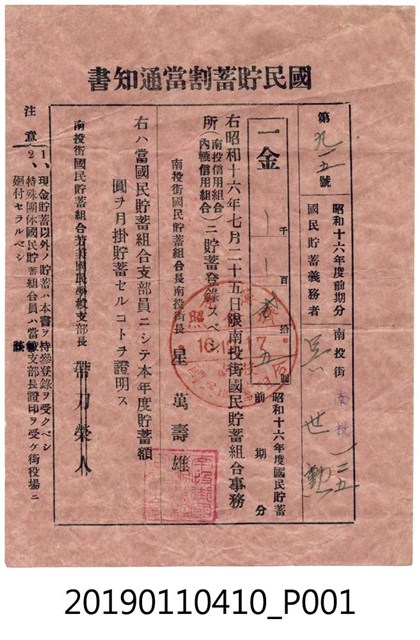 國民貯蓄割當通知書
第九一五號
昭和十六年度前期分 南投街 南投 二五
國民貯蓄義務者 吳世勳
一金 千百貳拾五圓
昭和十六年度國民貯蓄
前期分
右昭和十六年七月二十五日限南投街國民貯蓄組合事務
所(南投信用組合 內轆信用組合)ニ貯蓄登錄スベシ
南投街國民貯蓄組合長南投街長 星萬壽雄
右ハ當國民貯蓄組合支部員ニシテ本年度貯蓄額
圓ヲ月掛貯蓄セルコトヲ證明ス
南投街國民貯蓄組合 支部長 帶刀榮人
注意 1、現金貯蓄以外ノ貯蓄ハ本書ヲ持參登錄ヲ受クベシ
2、特殊團体國民貯蓄組合員ハ當該支部長證印ヲ受ケ街役場ニ
廻付セラルベシ
20190110410_P001